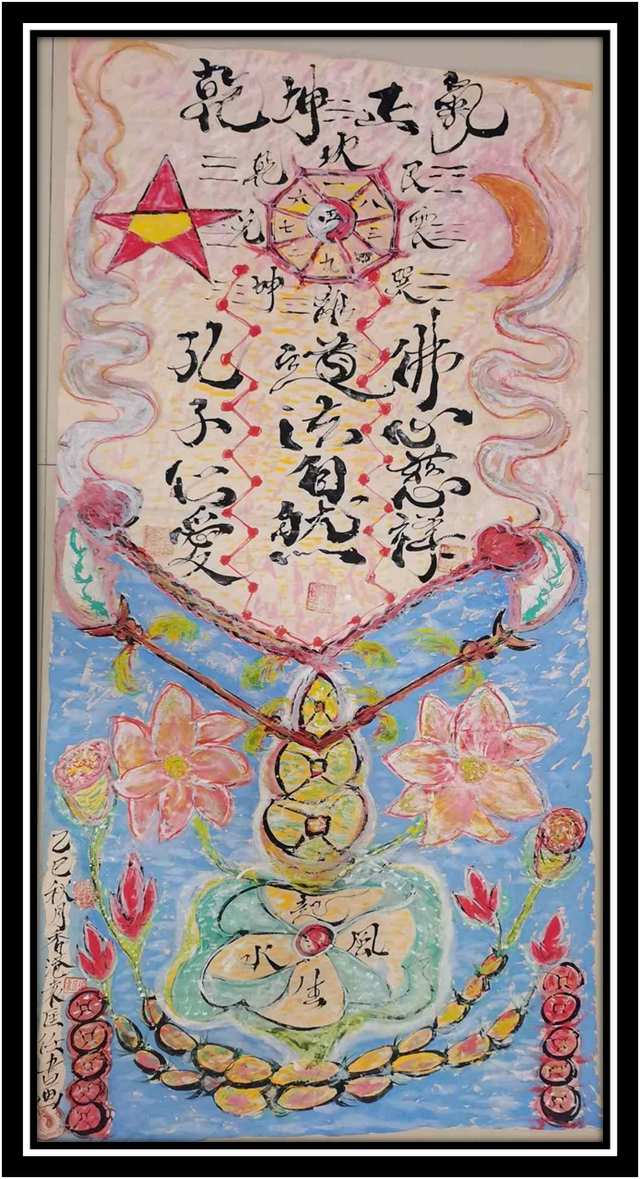 乾坤正氣
坎
乾 艮
兑 震
坤 離 巽
六 一 八
七 五 三
二 九 四
佛心慈祥
道法自然
孔子仁愛
風生水起
乙巳秋月香港 書画